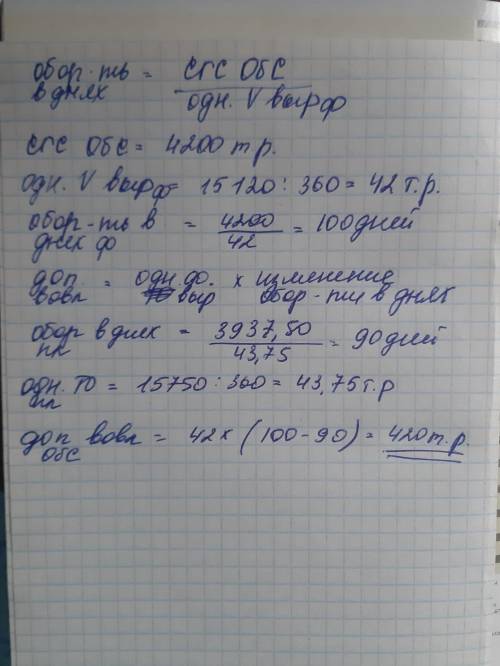 обор-ть в днях = СГС ОбС / одн. V выр ф
СГС ОбС = 4200 т р.
одн. V выр ф = 15120 : 360 = 42 т.р.
обор-ть в днях ф = 4200 / 42 = 100 дней
доп вовл = одн. ф. выр х изменение обор-ти в днях
обор в днях пл = 3937,50 / 43,75 = 90 дней
одн. ТО пл = 15750 : 360 = 43,75 т.р
доп вовл ОбС = 42 х (100 - 90) = 420 т.р.